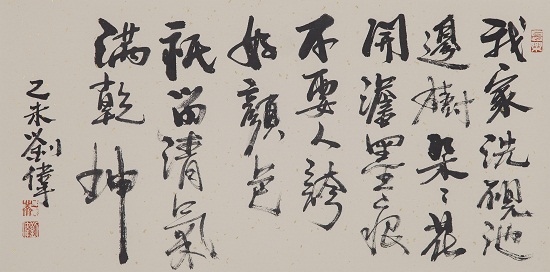 我家洗硯池
邊樹朵〻花
開澹墨痕
不要人誇
好顏色
祇留清氣
滿乾坤
乙未劉偉